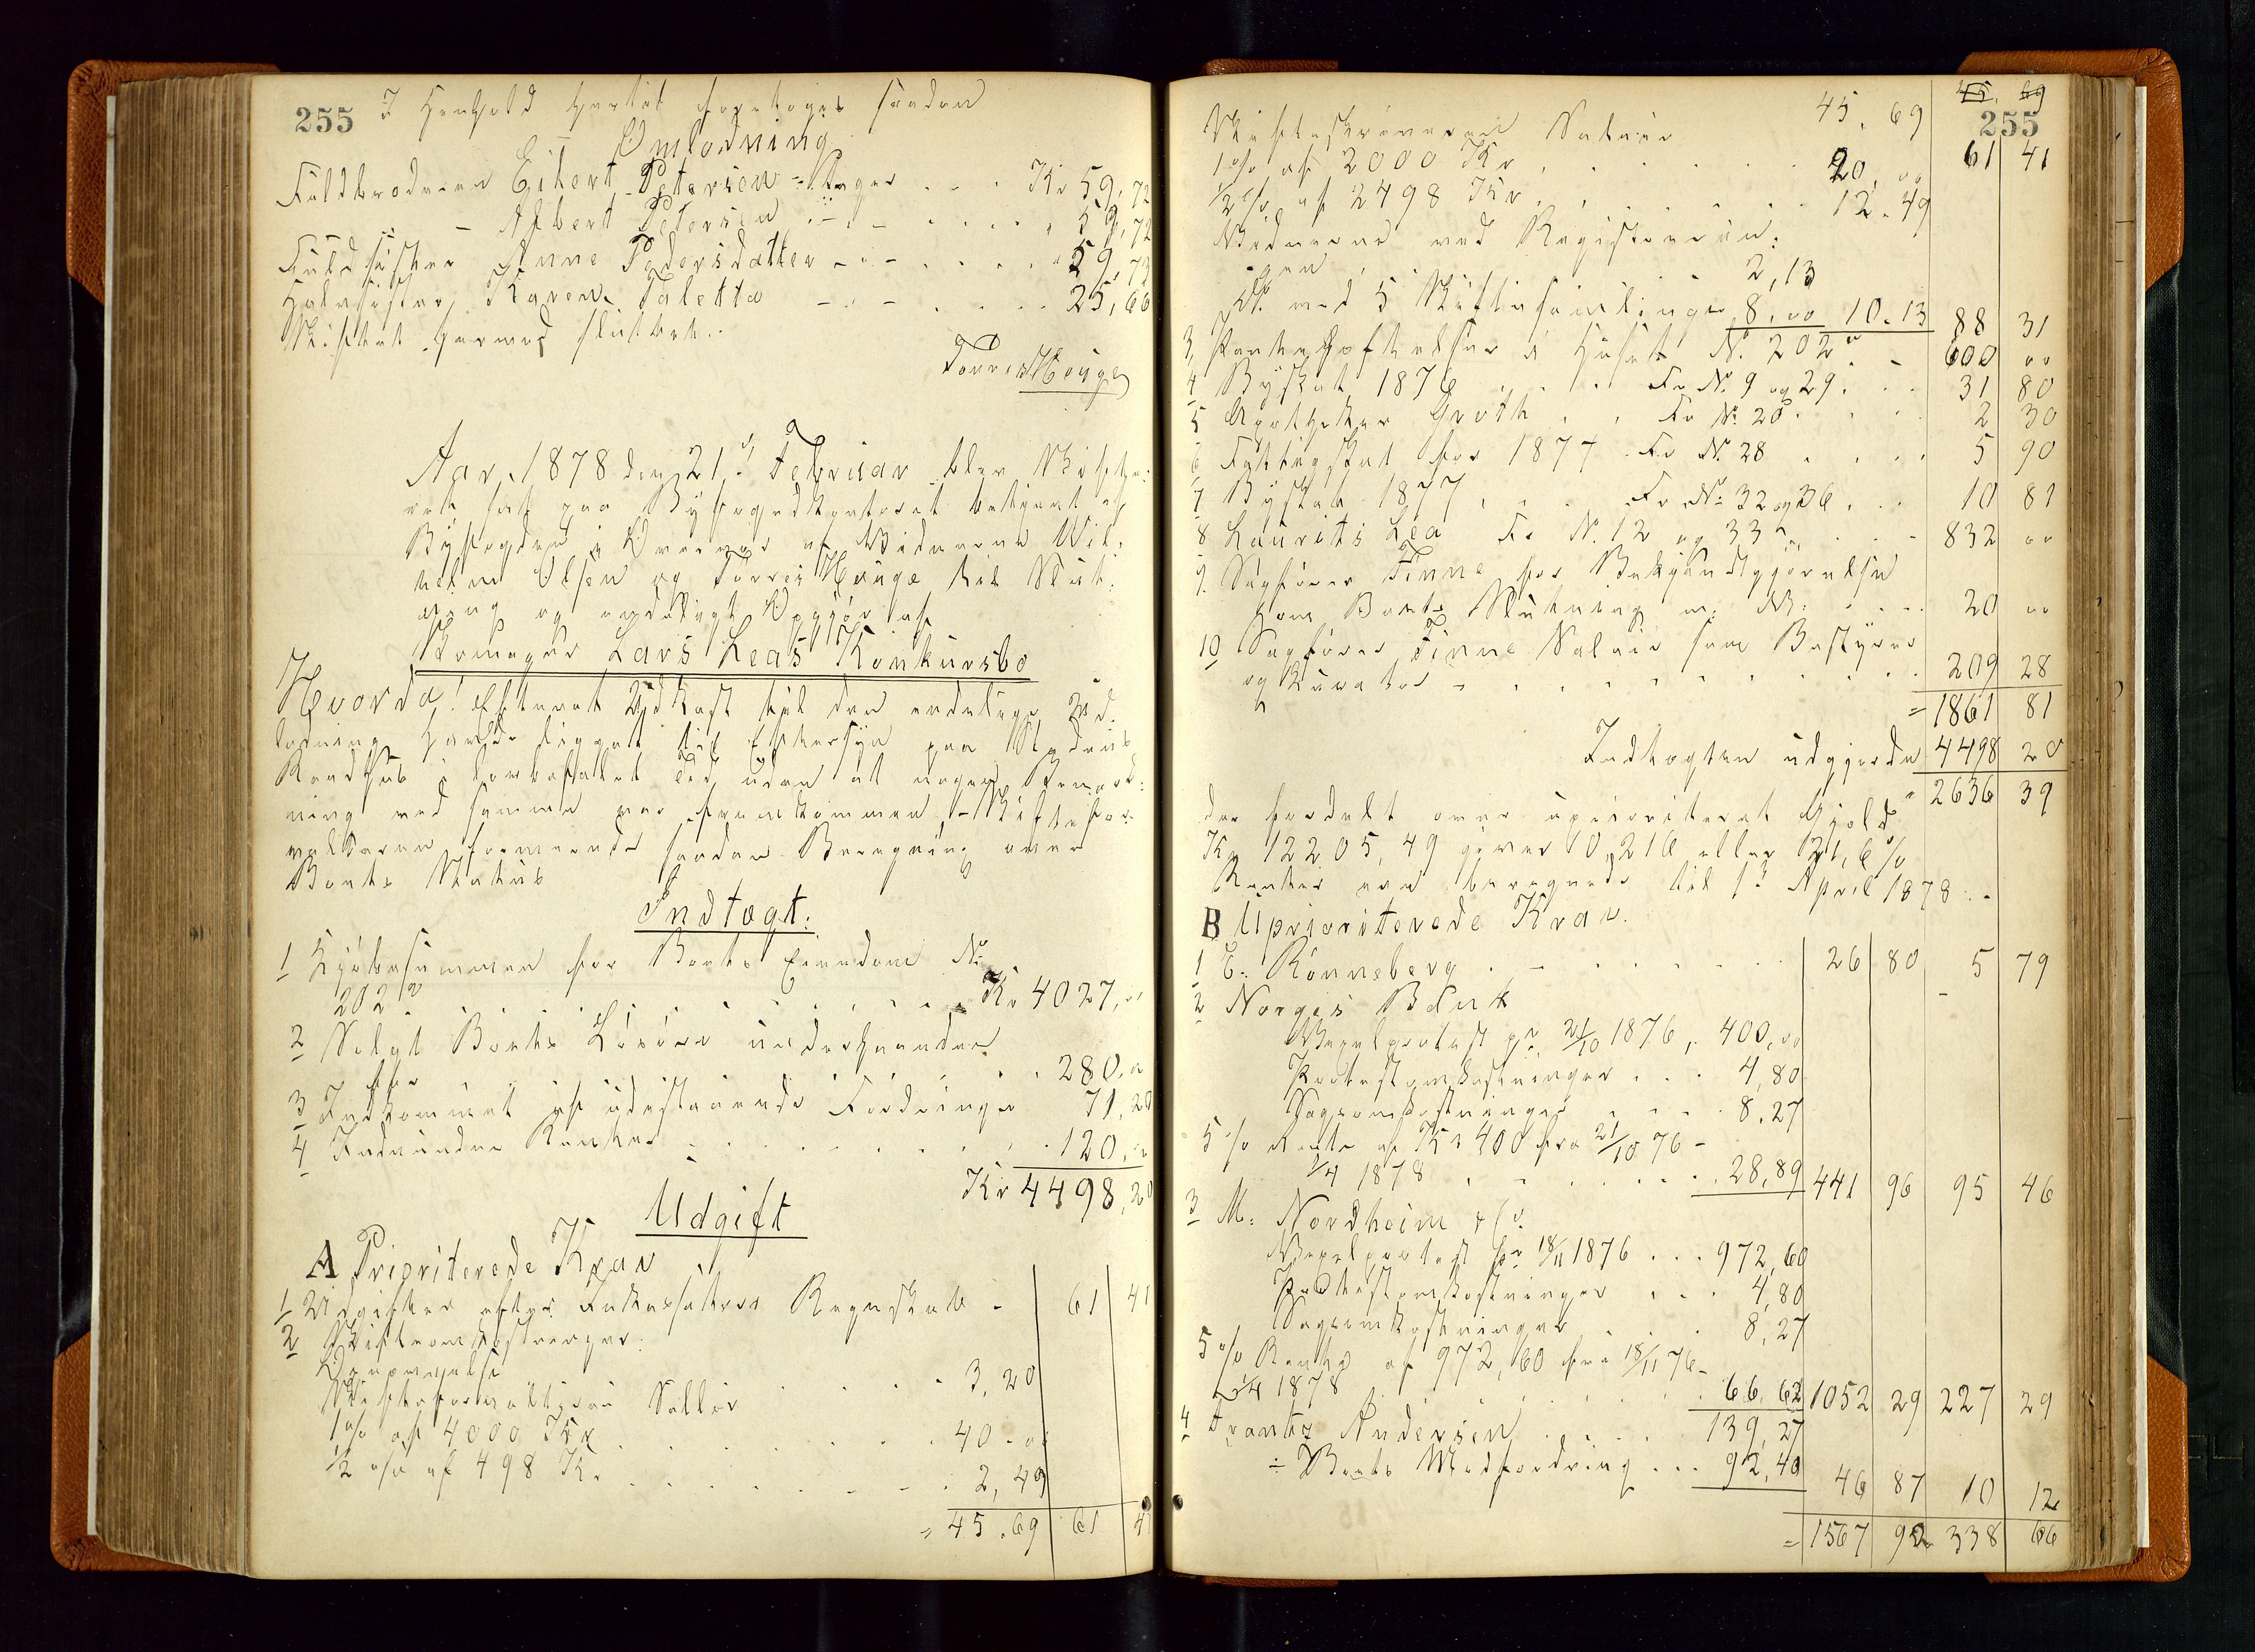 255
I Henhold hertil foretoges saadan
Omlodning
Fuldbroderen Eilert Petersen Kr 59,72
— Albert Petersen — 59,72
Fuldsøster Anne Pedersdatter — 59,73
Halvsøster Karen Taletta — 25,66
Skiftet hermed sluttet.
Tørres Houge
Aar 1878 den 21de Februar blev Skifte-
ret sat paa Byfogedkontoret betjent af
Byfogden i Overvær af Vidnerne Wil-
helm Olsen og Tørres Houge til Slut-
ning og endeligt Opgjør af
Skomager Lars Leas Konkursbo
Hvorda! Efterat Udkast til den endelige Ud-
lodning havde ligget til Eftersyn paa Stedets
Raadhus i lovbefalet Tid uden at nogen Bemærk-
ning ved samme var fremkommen, - Skiftefor-
valteren formerede saadan Beregning over
Boets Status
Indtægt:
1 Kjøbesummen for Boets Eiendom No
202a Kr 4027,00
2 Solgt Boets Løsøre underhaanden
for 280,00
3 Indkommet af udestaaende Fordringer 71,20
4 Indvundne Renter 120,00
Kr 4498,20
Udgift
A Prioriterede Krav
1 Udgifter efter Inkassators Regnskab - 61 41
2 Skifteomkostninger:
3,20
Skifteforvalterens Sallær
1% af 4000 Kr 40,00
1/2 % af 498 Kr 2,49
= 45,69 61 41
45, 69
255
Skifteskriveren Salær 45,69
1% af 2000 Kr 20,00 61 41
1/2 % af 2498 Kr 12,49
Vidnerne ved Registrerin-
gen 2,13
Do. ved 5 Skiftesamlinger 8,00 10,13 88 31
3, Panteheftelser i Huset No. 202a - 600 00
4 Byskat 1876 Fr No. 9 og 29. 31 80
5 Apotheker Groth Fr No 20 2 30
6 Fattigskat for 1877 Fr No. 28 5 90
7 Byskat 1877 Fr No. 32 og 36 10 81
8 Laurits Lea Fr No. 12 og 33 832 00
9. Sagfører Finne for Bekjendtgjørelse
om Boets Slutning m. V. 20 00
10 Sagfører Finne Salair som Bestyrer
og Kurator 209 28
= 1861 81
Indtægten udgjorde 4498 20
2636 39
der fordelt over uprioriteret Gjæld
Kr 12205,49 giver 0,216 eller 21,6%
Renter ere beregnede til 1ste April 1878.
B Uprioriterede Krav.
1 E. Rønneberg 26 80 5 79
2 Norges Bank
Vexelprotest pr. 21/10 1876, 400,00
Protestomkostninger 4,80
Sagsomkostninger 8,27
5% Rente af Kr 400 fra 21/10 76 -
1/4 1878 28,89 441 96 95 46
3 M. Nordheim & Co.
Vexelprotest pr 18/11 1876 972,60
Protestomkostninger 4,80
Sagsomkostninger 8,27
5% Rente af 972,60 fra 18/11 76-
1/4 1878 66,62 1052 29 227 29
4 Frants Andersen 139,27
÷ Boets Modfordring 92,40 46 87 10 12
= 1567 92 338 66